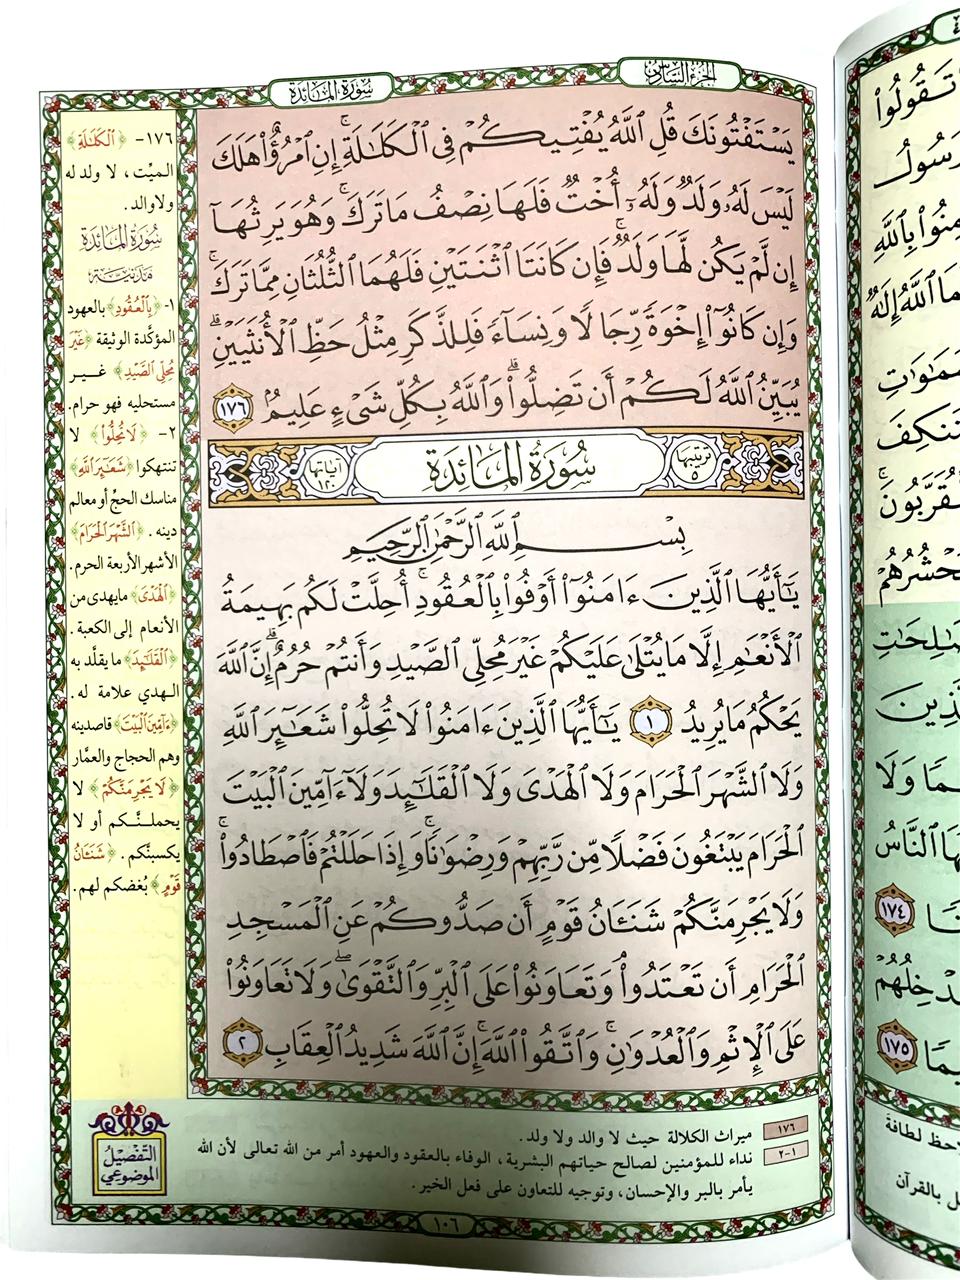 الجزء السادس
سورة المائدة
يَسْتَفْتُونَكَ قُلِ ٱللَّهُ يُفْتِيكُمْ فِى ٱلْكَلَٰلَةِ ۚ إِنِ ٱمْرُؤٌا۟ هَلَكَ
لَيْسَ لَهُۥ وَلَدٌ وَلَهُۥٓ أُخْتٌ فَلَهَا نِصْفُ مَا تَرَكَ ۚ وَهُوَ يَرِثُهَآ
إِن لَّمْ يَكُن لَّهَا وَلَدٌ ۚ فَإِن كَانَتَا ٱثْنَتَيْنِ فَلَهُمَا ٱلثُّلُثَانِ مِمَّا تَرَكَ ۚ
وَإِن كَانُوٓا۟ إِخْوَةً رِّجَالًا وَنِسَآءً فَلِلذَّكَرِ مِثْلُ حَظِّ ٱلْأُنثَيَيْنِ ۗ
يُبَيِّنُ ٱللَّهُ لَكُمْ أَن تَضِلُّوا۟ ۗ وَٱللَّهُ بِكُلِّ شَىْءٍ عَلِيمٌۢ ١٧٦
ترتيبها ٥ سُورَةُ المَائدَة آياتها ١٢٠
بِسْمِ ٱللَّهِ ٱلرَّحْمَٰنِ ٱلرَّحِيمِ
يَٰٓأَيُّهَا ٱلَّذِينَ ءَامَنُوٓا۟ أَوْفُوا۟ بِٱلْعُقُودِ ۚ أُحِلَّتْ لَكُم بَهِيمَةُ
ٱلْأَنْعَٰمِ إِلَّا مَا يُتْلَىٰ عَلَيْكُمْ غَيْرَ مُحِلِّى ٱلصَّيْدِ وَأَنتُمْ حُرُمٌ ۗ إِنَّ ٱللَّهَ
يَحْكُمُ مَا يُرِيدُ ١ يَٰٓأَيُّهَا ٱلَّذِينَ ءَامَنُوا۟ لَا تُحِلُّوا۟ شَعَٰٓئِرَ ٱللَّهِ
وَلَا ٱلشَّهْرَ ٱلْحَرَامَ وَلَا ٱلْهَدْىَ وَلَا ٱلْقَلَٰٓئِدَ وَلَآ ءَآمِّينَ ٱلْبَيْتَ
ٱلْحَرَامَ يَبْتَغُونَ فَضْلًا مِّن رَّبِّهِمْ وَرِضْوَٰنًا ۚ وَإِذَا حَلَلْتُمْ فَٱصْطَادُوا۟ ۚ
وَلَا يَجْرِمَنَّكُمْ شَنَـَٔانُ قَوْمٍ أَن صَدُّوكُمْ عَنِ ٱلْمَسْجِدِ
ٱلْحَرَامِ أَن تَعْتَدُوا۟ ۘ وَتَعَاوَنُوا۟ عَلَى ٱلْبِرِّ وَٱلتَّقْوَىٰ ۖ وَلَا تَعَاوَنُوا۟
عَلَى ٱلْإِثْمِ وَٱلْعُدْوَٰنِ ۚ وَٱتَّقُوا۟ ٱللَّهَ ۖ إِنَّ ٱللَّهَ شَدِيدُ ٱلْعِقَابِ ٢
١٧٦- ﴿ٱلْكَلَٰلَةِ﴾
الميّت، لا ولد له
ولاوالد.
سُورَةُ المَائدَة
مدنية
١- ﴿بِٱلْعُقُودِ﴾ بالعهود
المؤكَّدة الوثيقة ﴿غَيْرَ
مُحِلِّى ٱلصَّيْدِ﴾ غير
مستحليه فهو حرام.
٢- ﴿لَا تُحِلُّوا۟﴾ لا
تنتهكوا ﴿شَعَٰٓئِرَ ٱللَّهِ﴾
مناسك الحجّ أو معالم
دينه. ﴿ٱلشَّهْرَ ٱلْحَرَامَ﴾
الأشهر الأربعة الحرم.
﴿ٱلْهَدْىَ﴾ مايهدى من
الأنعام إلى الكعبة.
﴿ٱلْقَلَٰٓئِدَ﴾ ما يقلَّد به
الهدي علامة له.
﴿ءَآمِّينَ ٱلْبَيْتَ﴾ قاصدينه
وهم الحجاج والعمَّار
﴿لَا يَجْرِمَنَّكُمْ﴾ لا
يحملنَّكم أو لا
يكسبنَّكم. ﴿شَنَـَٔانُ
قَوْمٍ﴾ بُغضكم لهم.
١٧٦ ميراث الكلالة حيث لا والد ولا ولد.
١-٢ نداء للمؤمنين لصالح حياتهم البشرية، الوفاء بالعقود والعهود أمر من الله تعالى لأن الله
يأمر بالبر والإحسان، وتوجيه للتعاون على فعل الخير.
التفصيل
الموضوعي
١٠٦
تَقُولُوا۟
رَسُولُ
بِٱللَّهِ
ٱللَّهُ إِلَٰهٌ
وَلَا
ٱلنَّاسُ
١٧٤
١٧٥
لطافة
بالقرآن